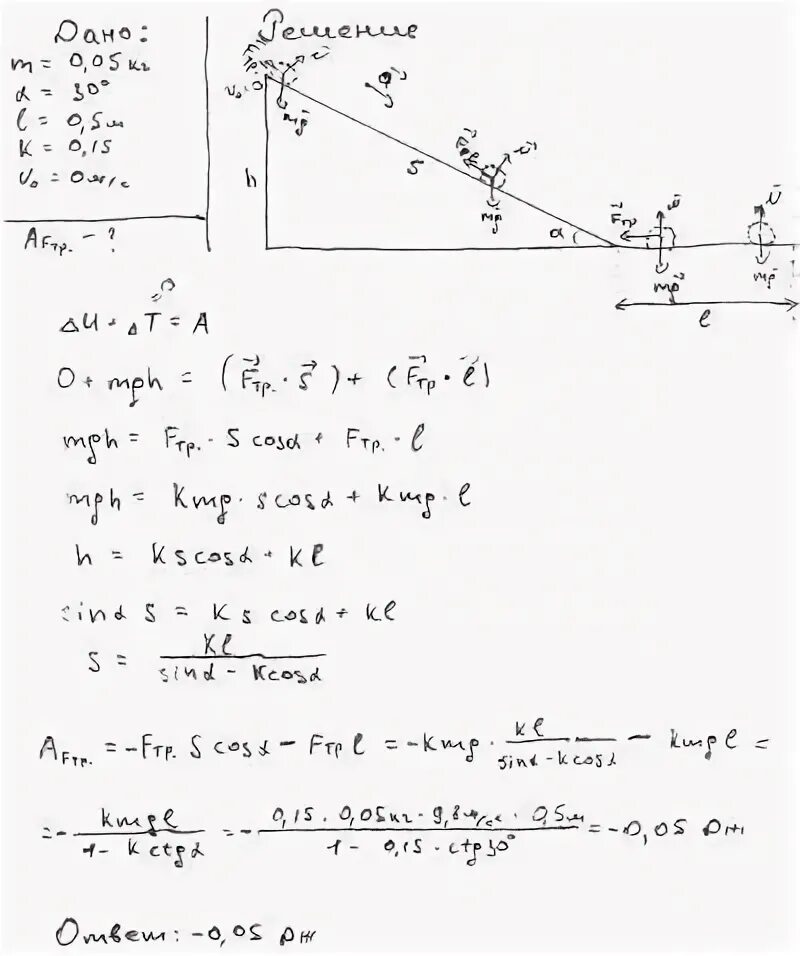 Дано:
m = 0,05 кг
α = 30°
l = 0,5 м
K = 0,15
v₀ = 0 м/с
Aтр. - ?
Решение
v₀ = 0
mg
h
S
mg
α
Fтр
mg
mg
l
ΔU + ΔT = A
0 + mgh = (Fтр. · S) + (Fтр · l)
mgh = Fтр. · S cosα + Fтр. · l
mgh = Kmg · s cosα + Kmg · l
h = K s cosα + Kl
sinα S = K s cosα + Kl
S = Kl / (sinα - K cosα)
AFтр. = -Fтр. S cosα - Fтр l = -Kmg · Kl / (sinα - K cosα) - Kmg l =
= - Kmgl / (1 - K ctgα) = - 0,15 · 0,05кг · 9,8м/с² · 0,5м / (1 - 0,15 · ctg30°) = -0,05 Дж
Ответ: -0,05 Дж